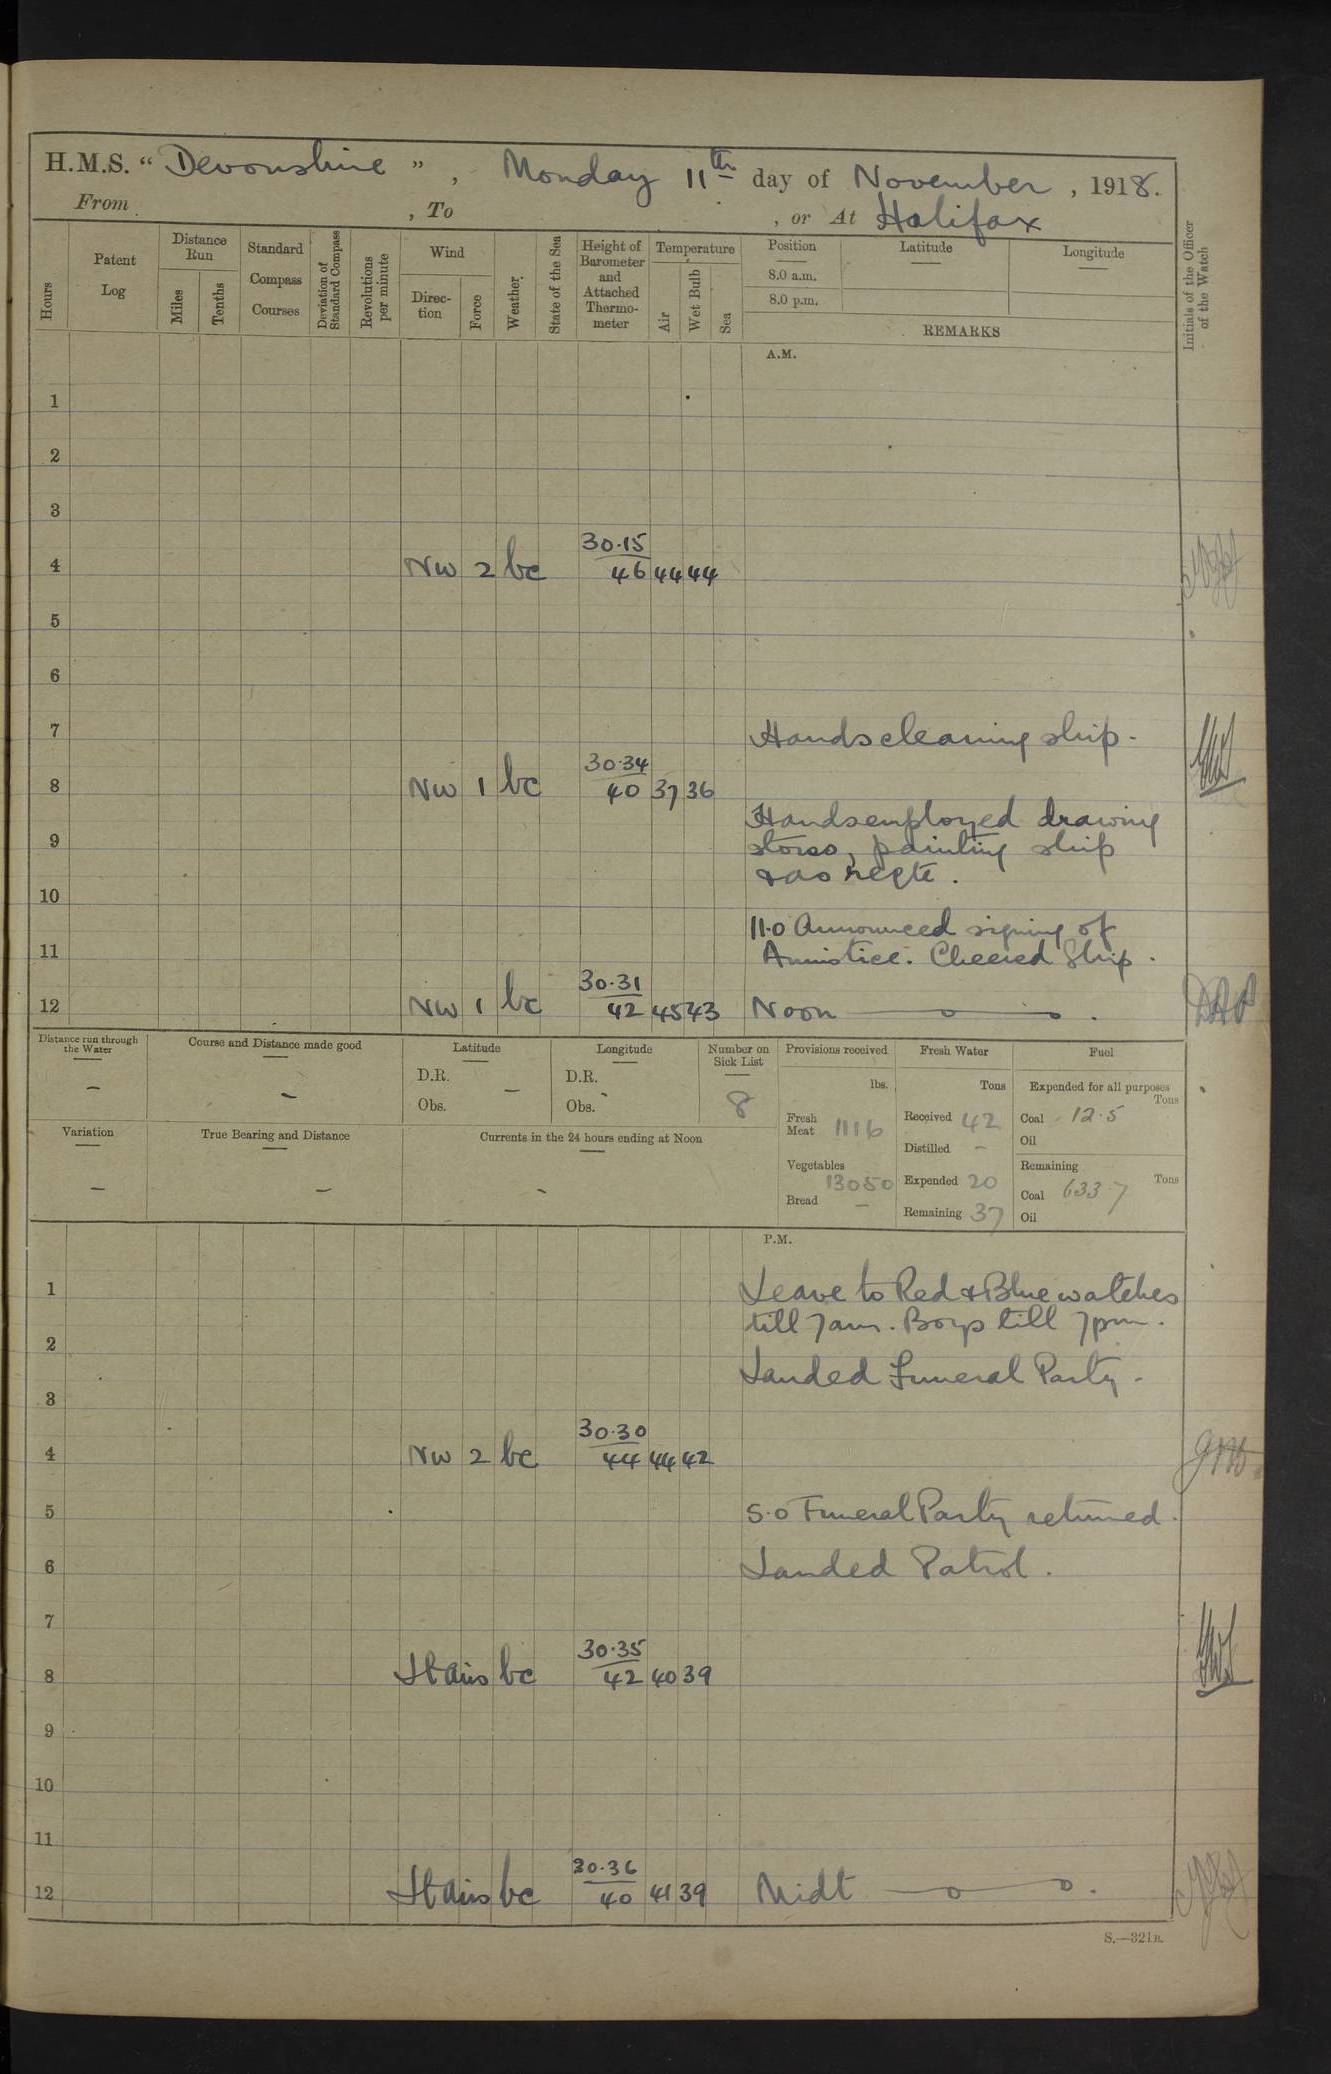 H.M.S. “ Devonshire ” , Monday 11th day of November , 1918.
From , To , or At Halifax
Hours
Patent Log
Distance Run
Miles
Tenths
Standard Compass Courses
Deviation of Standard Compass
Revolutions per minute
Wind
Direc-tion
Force
Weather
State of the Sea
Height of Barometer and Attached Thermo-meter
Temperature
Air
Wet Bulb
Sea
Position
8.0 a.m.
8.0 p.m.
Latitude
Longitude
REMARKS
Initials of the Officer of the Watch
A.M.
1
2
3
4 NW 2 bc 30.15 46 44 44
5
6
7 Hands cleaning ship.
8 NW 1 bc 30.34 40 37 36
Hands employed drawing
9 stores, painting ship
& as reqte.
10
11.0 Announced signing of
11 Armistice. Cheered Ship.
12 NW 1 bc 30.31 42 45 43 Noon
Distance run through the Water
–
Course and Distance made good
–
Latitude
D.R. –
Obs.
Longitude
D.R. -
Obs.
Number on Sick List
8
Provisions received
lbs.
Fresh Meat 1116
Vegetables 13050
Bread –
Fresh Water
Tons
Received 42
Distilled –
Expended 20
Remaining 37
Fuel
Expended for all purposes
Tons
Coal 12.5
Oil
Remaining
Tons
Coal 633.7
Oil
Variation
–
True Bearing and Distance
–
Currents in the 24 hours ending at Noon
-
P.M.
1 Leave to Red & Blue watches
till 7am. Boys till 7pm.
2
Landed Funeral Party.
3
4 NW 2 bc 30.30 44 44 42
5 5.0 Funeral Party returned.
6 Landed Patrol.
7
8 Lt airs bc 30.35 42 40 39
9
10
11
12 Lt airs bc 30.36 40 41 39 Midt
S.—321B.